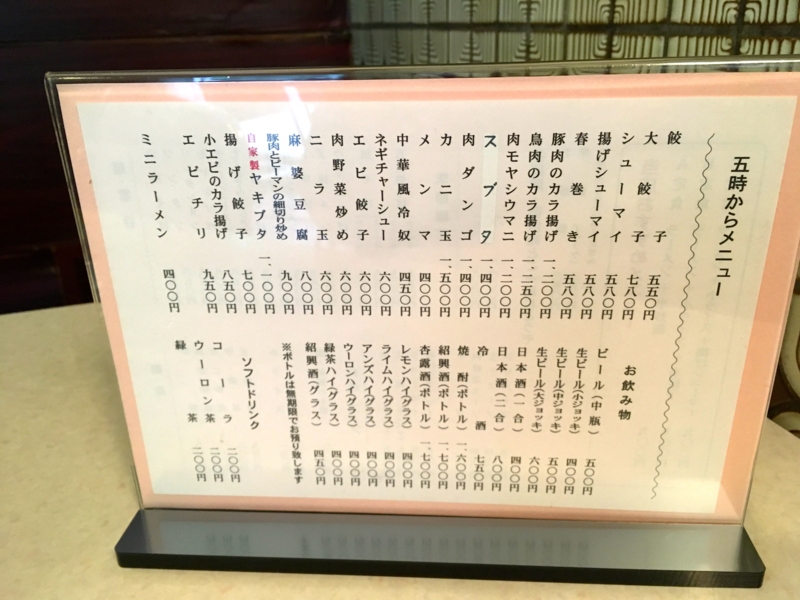 五時からメニュー
餃子 五五〇円
大餃子 七八〇円
シューマイ 五八〇円
揚げシューマイ 五八〇円
春巻き 五八〇円
豚肉のカラ揚げ 一、二〇〇円
鳥肉のカラ揚げ 一、二五〇円
肉モヤシウマニ 一、二〇〇円
スブタ 一、四〇〇円
肉ダンゴ 一、四〇〇円
カニ玉 一、五〇〇円
メンマ 四〇〇円
中華風冷奴 四五〇円
ネギチャーシュー 六〇〇円
エビ餃子 六〇〇円
肉野菜炒め 六〇〇円
ニラ玉 六〇〇円
麻婆豆腐 八〇〇円
豚肉とピーマンの細切り炒め 九〇〇円
自家製ヤキブタ 一、一〇〇円
揚げ餃子 七〇〇円
小エビのカラ揚げ 八五〇円
エビチリ 九五〇円
ミニラーメン 四〇〇円
お飲み物
ビール(中瓶) 五〇〇円
生ビール(小ジョッキ) 四〇〇円
生ビール(中ジョッキ) 五〇〇円
生ビール(大ジョッキ) 六〇〇円
日本酒(一合) 四〇〇円
日本酒(二合) 八〇〇円
冷酒 七五〇円
焼酎(ボトル) 一、六〇〇円
紹興酒(ボトル) 一、七〇〇円
杏露酒(ボトル) 一、七〇〇円
レモンハイ(グラス) 四〇〇円
ライムハイ(グラス) 四〇〇円
アンズハイ(グラス) 四〇〇円
ウーロンハイ(グラス) 四〇〇円
緑茶ハイ(グラス) 四〇〇円
紹興酒(グラス) 四五〇円
※ボトルは無期限でお預り致します
ソフトドリンク
コーラ 二〇〇円
ウーロン茶 二〇〇円
緑茶 二〇〇円